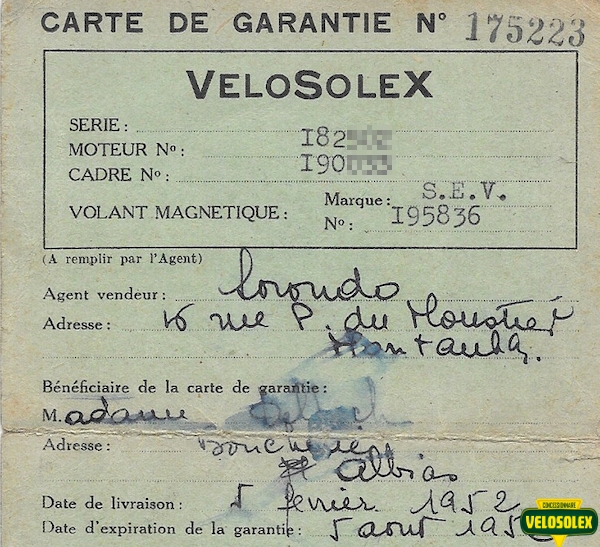 CARTE DE GARANTIE N° 175223
VELOSOLEX
SERIE :
MOTEUR No : I82
CADRE No : I90
VOLANT MAGNETIQUE : Marque : S.E.V.
No : I95836
(A remplir par l'Agent)
Agent vendeur : Lorondo
Adresse : rue P. du Moustier
Montauban.
Bénéficiaire de la carte de garantie :
M.adame
Adresse : Boucherie
Albias
Date de livraison : 5 fevrier 1952
Date d'expiration de la garantie : 5 aout 195
CONCESSIONNAIRE
VELOSOLEX